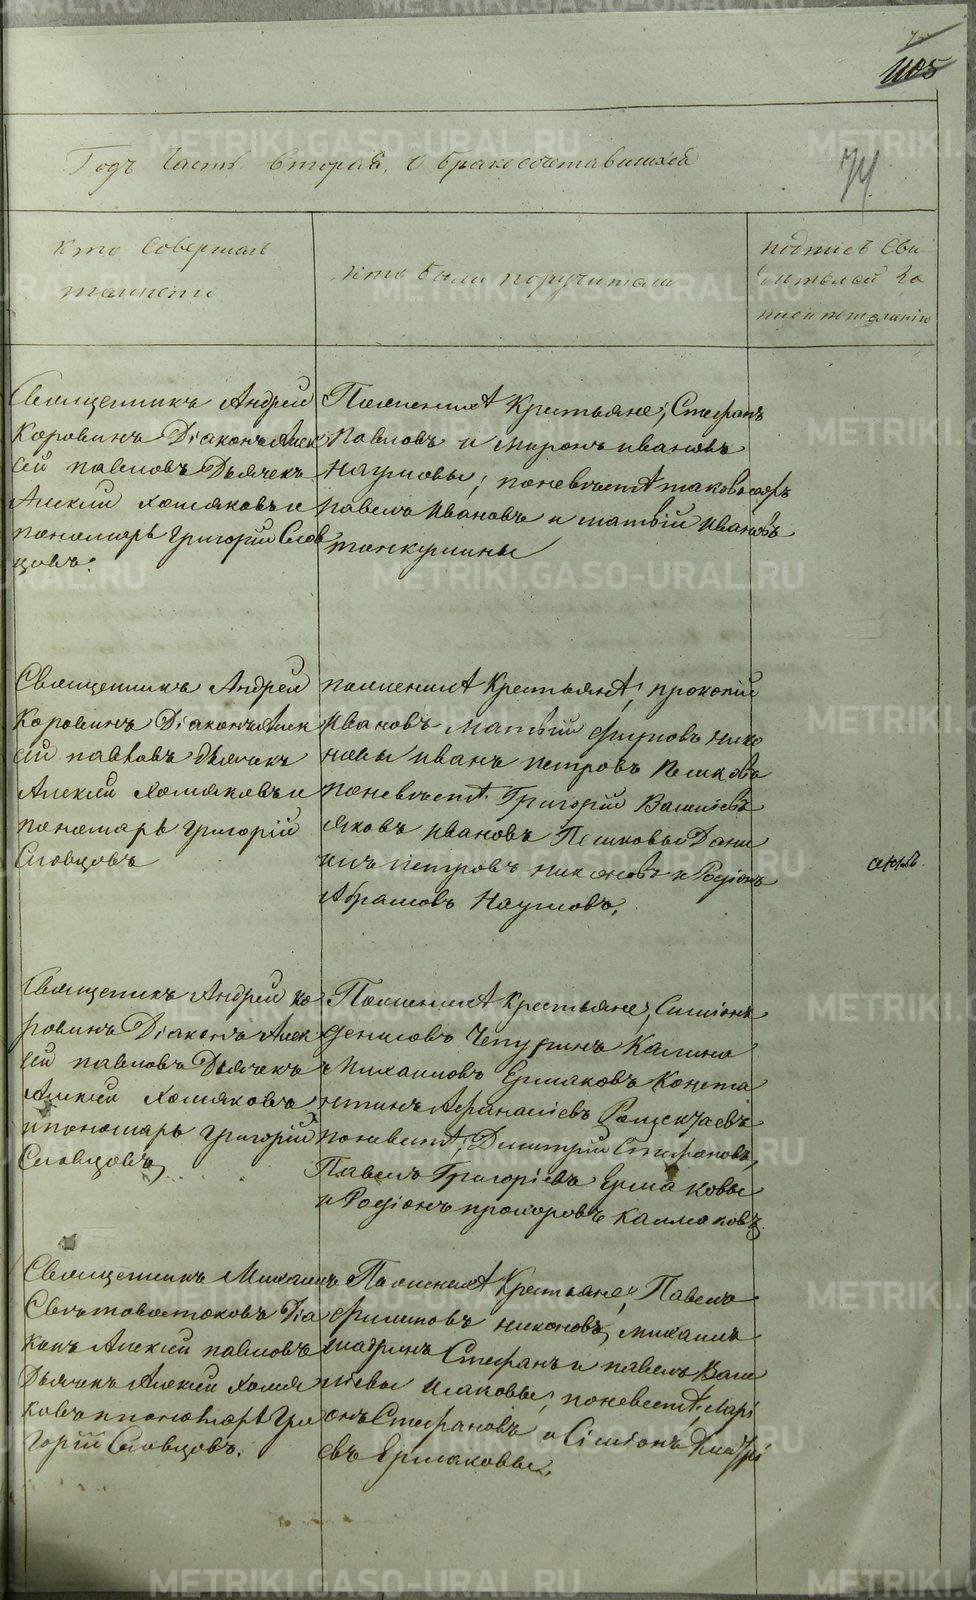 1105
74
Годъ Часть вторая, о бракосочетавшихся
Кто совершалъ таинство
Кто были поручители
подпись сви
дѣтелей за
писи по желанію
Священникъ Андрей
Коровинъ Діаконъ Алек
сѣй Павловъ Дьячекъ
Алексій Хомяковъ и
пономарь Григорій Слов
цовъ.
По женихѣ Крестьяне, Стефанъ
Павловъ и Миронъ Ивановъ
Наумовы; по невѣстѣ таковы жъ
Павелъ Ивановъ и Матвій Ивановъ
Священникъ Андрей
Коровинъ Діаконъ Алек
сѣй Павловъ Дьячекъ
Алексій Хомяковъ и
пономарь Григорій
Словцовъ
по женихѣ Крестьяне, Прокопій
Ивановъ Матвій Никo
новы Иванъ Петровъ Пешковъ
по невѣстѣ Григорій Василіевъ
Яковъ Ивановъ Пешковы Дани
илъ Петровъ Никоновъ и Родіонъ
Абрамовъ Наумовъ.
Священникъ Андрей Ко
ровинъ Діаконъ Алек
сѣй Павловъ Дьячекъ
Алексій Хомяковъ
и пономарь Григорій
Словцовъ
По женихѣ Крестьяне, Симіонъ
Денисовъ Чепуринъ Калина
Михаиловъ Ермаковъ Конста
нтинъ Афанасіевъ
по невѣстѣ, Димитрій Стефановъ,
Павелъ Григоріевъ Ермаковы
и Родіонъ Прохоровъ Калмаковъ.
Священникъ Михаилъ
Свѣтовостоковъ Діа
конъ Алексій Павловъ
Дьячекъ Алексій Хомя
ковъ и пономарь Гри
горій Словцовъ.
По женихѣ Крестьяне, Павелъ
Филиповъ Никоновъ, Михаилъ
Шадринъ Стефанъ и Павелъ Васи
ліевы Исаковы, по невѣстѣ, Ларі
онъ Стефановъ и Сіміонъ Дмитрі
евъ Ермаковы.
METRIKI.GASO-URAL.RU